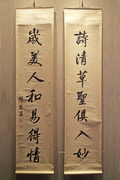 詩清草聖俱入妙
歲美人和易得情